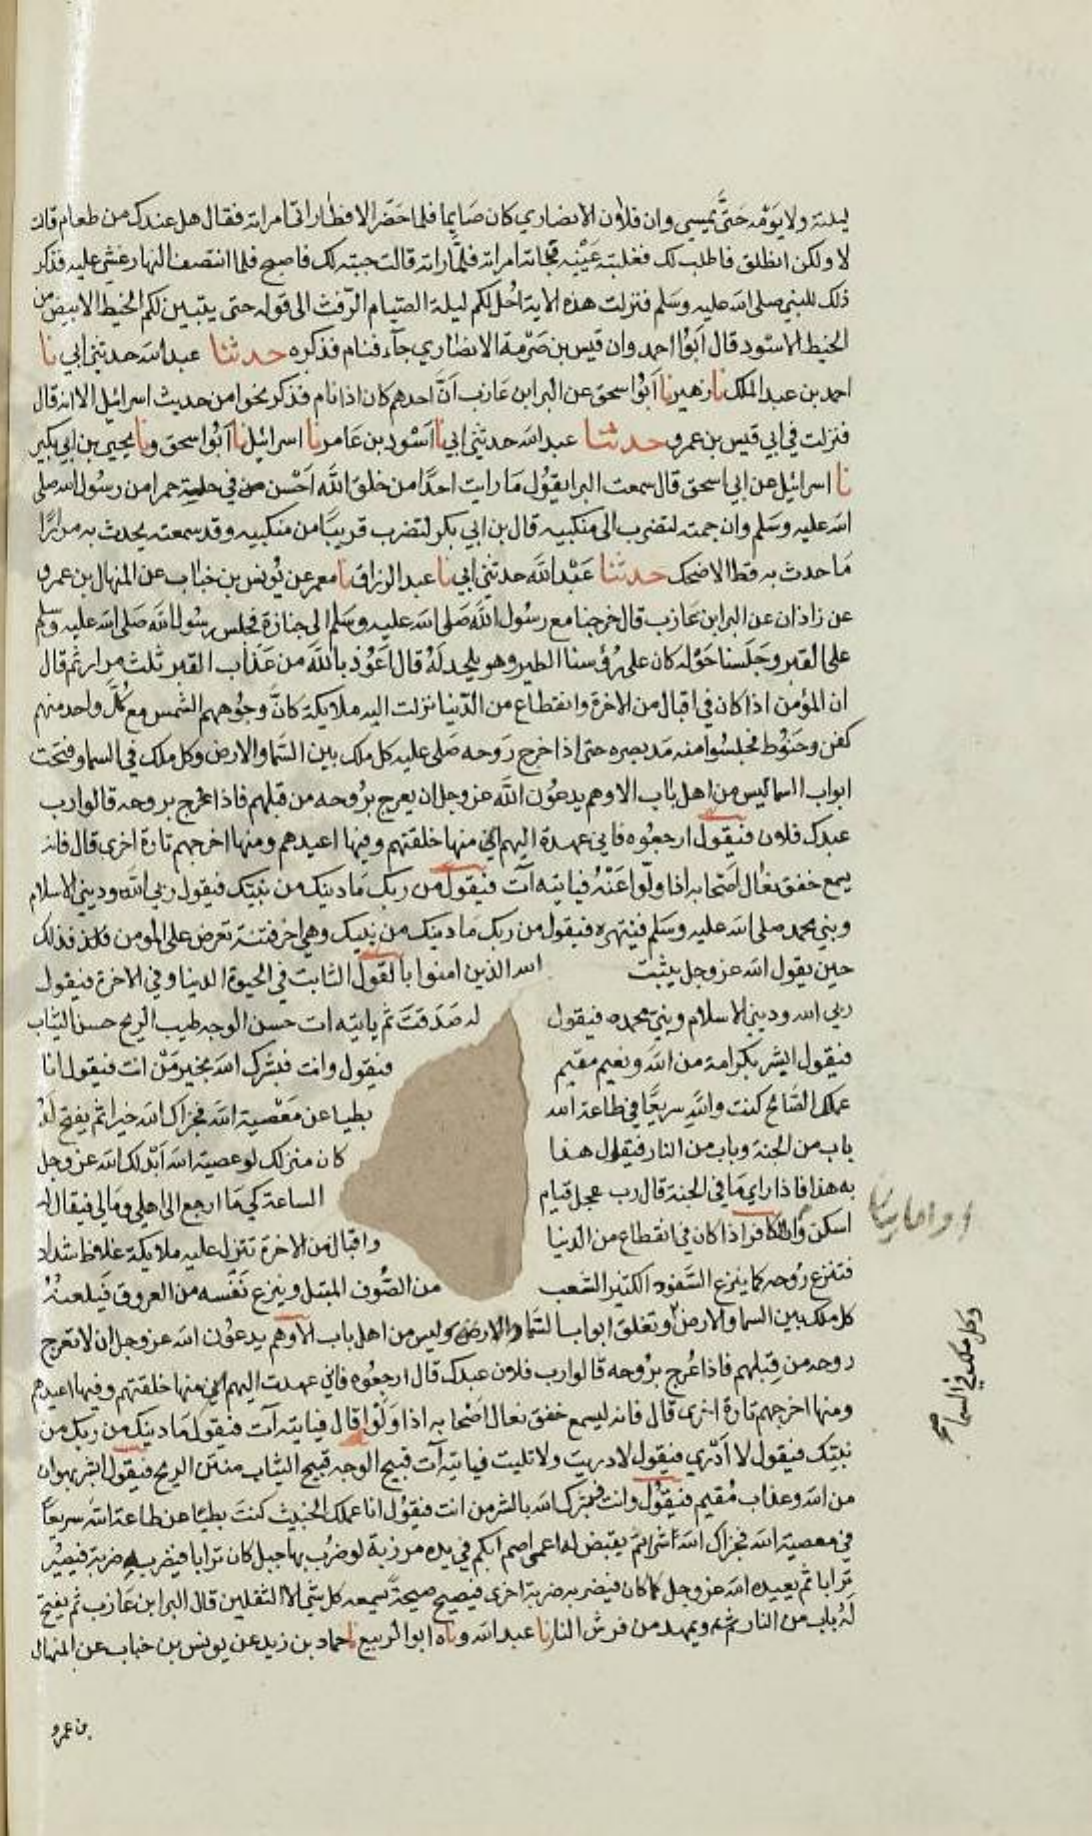 ليلته ولا يومه حتى يمسي وان فلان الانصاري كان صايما فلما حضر الافطار اتى امراته فقال هل عندك من طعام قالت
لا ولكن انطلق فاطلب لك فغلبته عينه فجاته امراته فلما راته قالت خيبة لك فاصبح فلما انتصف النهار غشي عليه فذكر
ذلك للنبي صلى الله عليه وسلم فنزلت هذه الاية احل لكم ليلة الصيام الرفث الى قوله حتى يتبين لكم الخيط الابيض من
الخيط الاسود قال ابوا احمد وان قيس بن صرمة الانصاري جآء فنام فذكره حدثنا عبد الله حدثني ابي نا
احمد بن عبد الملك نا زهير نا ابوا اسحق عن البرا ابن عازب ان احدهم كان اذا نام فذكر نحوا من حديث اسرائيل الا انه قال
فنزلت في ابي قيس بن عمرو حدثنا عبد الله حدثني ابي نا اسود بن عامر نا اسرائيل نا ابوا اسحق ونا يحيى بن ابي بكير
نا اسرائيل عن ابي اسحق قال سمعت البرا يقول ما رايت احدا من خلق الله احسن من في حلية حمرا من رسول الله صلى
الله عليه وسلم وان جمته لتضرب الى منكبيه قال بن ابي بكر لتضرب قريبا من منكبيه وقد سمعته يحدث به مرارا
ما حدث به قط الا ضحك حدثنا عبد الله حدثني ابي نا عبد الرزاق نا معمر عن يونس بن خباب عن المنهال بن عمرو
عن زاذان عن البرا ابن عازب قال خرجنا مع رسول الله صلى الله عليه وسلم الى جنازة فجلس رسول الله صلى الله عليه وسلم
على القبر وجلسنا حوله كان على رؤسنا الطير وهو يلحد له قال اعوذ بالله من عذاب القبر ثلث مرار ثم قال
ان المؤمن اذا كان في اقبال من الاخرة وانقطاع من الدنيا نزلت اليه ملايكة كان وجوههم الشمس مع كل واحد منهم
كفن وحنوط فجلسوا منه مد بصره حتى اذا خرج روحه صلى عليه كل ملك بين السما والارض وكل ملك في السما وفتحت
ابواب السما ليس من اهل باب الا وهم يدعون الله عز وجل ان يعرج بروحه من قبلهم فاذا عرج بروحه قالوا رب
عبدك فلان فيقول ارجعوه فاني عهدة اليهم اني منها خلقتهم وفيها اعيدهم ومنها اخرجهم تارة اخرى قال فانه
يسمع خفق نعال اصحابه اذا ولوا عنه فياتيه آت فيقول من ربك ما دينك من نبيك فيقول ربي الله وديني الاسلام
ونبي محمد صلى الله عليه وسلم فينتهره فيقول من ربك ما دينك من نبيك وهي اخر فتنة تعرض على المومن فذلك
حين يقول الله عز وجل يثبت الله الذين امنوا بالقول الثابت في الحيوة الدنيا وفي الاخرة فيقول
ربي الله وديني الاسلام ونبيي محمد فيقول له صدقت ثم ياتيه ات حسن الوجه طيب الريح حسن الثياب
فيقول ابشر بكرامة من الله ونعيم مقيم فيقول وانت فبشرك الله بخير من انت فيقول انا
عملك الصالح كنت والله سريعا في طاعة الله بطيا عن معصية الله فجزاك الله خيرا ثم يفتح له
باب من الجنة وباب من النار فيقال هذا كان منزلك لو عصية الله ابدلك الله عز وجل
به هذا فاذا راي ما في الجنة قال رب عجل قيام الساعة كي ما ارجع الى اهلي ومالي فيقال له
اسكن وان الكافر اذا كان في انقطاع من الدنيا واقبال من الاخرة تنزل عليه ملايكة غلاظ شداد
فتنزع روحه كما ينزع السفود الكثير الشعب من الصوف المبتل وينزع نفسه من العروق فيلعنه
كل ملك بين السما والارض وتغلق ابواب السما وليس من اهل باب الا وهم يدعون الله عز وجل ان لا تعرج
روحه من قبلهم فاذا عرج بروحه قالوا رب فلان عبدك قال ارجعوه فاني عهدت اليهم اني منها خلقتهم وفيها اعيدهم
ومنها اخرجهم تارة اخرى قال فانه ليسمع خفق نعال اصحابه اذا ولوا قال فياتيه آت فيقول ما دينك من ربك من
نبيك فيقول لا ادري فيقول لا دريت ولا تليت فياتيه آت قبيح الوجه قبيح الثياب منتن الريح فيقول ابشر بهوان
من الله وعذاب مقيم فيقول وانت فبشرك الله بالشر من انت فيقول انا عملك الخبيث كنت بطيا عن طاعة الله سريعا
في معصية الله فجزاك الله شرا ثم يقبض له اعمى اصم ابكم في يده مرزبة لو ضرب بها جبل كان ترابا فيضربه ضربة فيصير
ترابا ثم يعيده الله عز وجل كما كان فيضربه ضربة اخرى فيصيح صيحة يسمعه كل شي الا الثقلين قال البرا ابن عازب ثم يفتح
له باب من النار ويمهد من فرش النار نا عبد الله وناه ابوا الربيع نا حماد بن زيد عن يونس بن خباب عن المنهال
بن عمرو
وكل ملك في السما صح